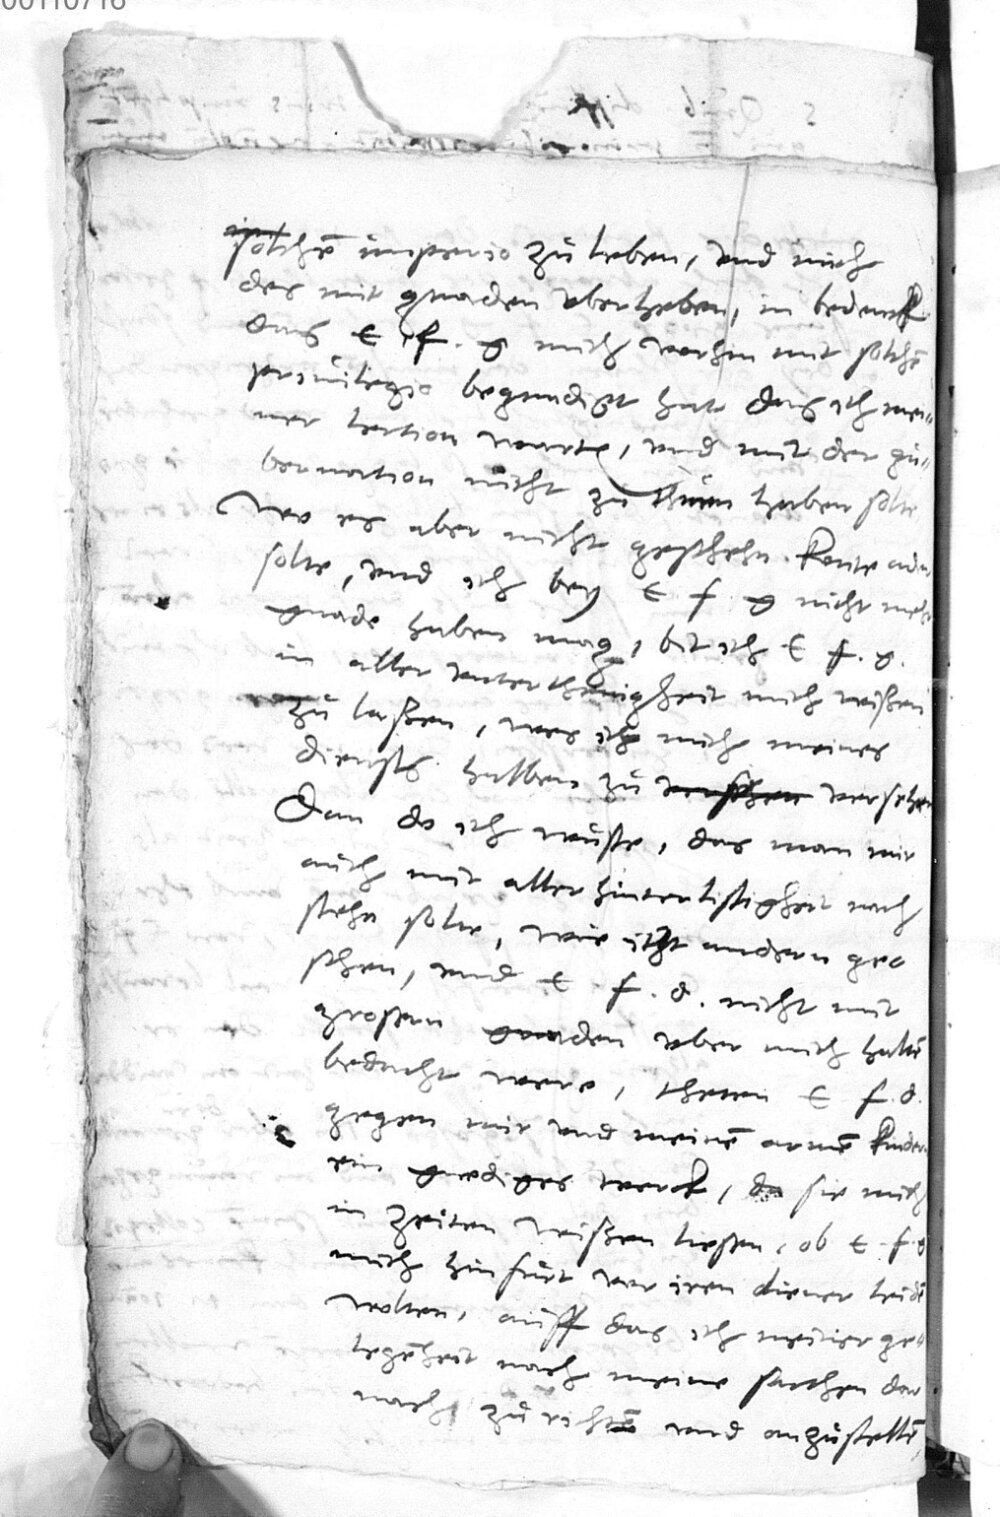 00110716
solchē imperio zu lieben, vnd mich
des mit gnaden vberheben, in bedenck
das E f. g mich vorhin mit solchē
priuilegio begnadigt hat das ich mei-
ner lection warte, vnd mit der gu-
bernation nicht zu thun haben solte
Wo es aber nicht geschehn konte oder
solte, vnd ich bey E f g nicht mehr
gnade haben mag, bit ich E f. g.
in aller vnterthänigheit mich wißen
zu laßen, wes ich mich meines
diensts halben zu versehen
Dan do ich wuste, das man mir
auch mit aller hinterlistigheit nach
stehn solte, wie itzt andern ge
schen, vnd E f. g. nicht mit
großern gnaden vber mich haltē
bedacht were, theten E f. g.
gegen mir vnd meinē armē kinder
ein gnediges werck, do sie mich
in zeiten wißen ließen, ob E f g
mich hinfurt vor iren diener leidē
wolten, auff das ich meiner ge-
legēheit nach meine sachen dar
nach zu richtē vnd anzustellē